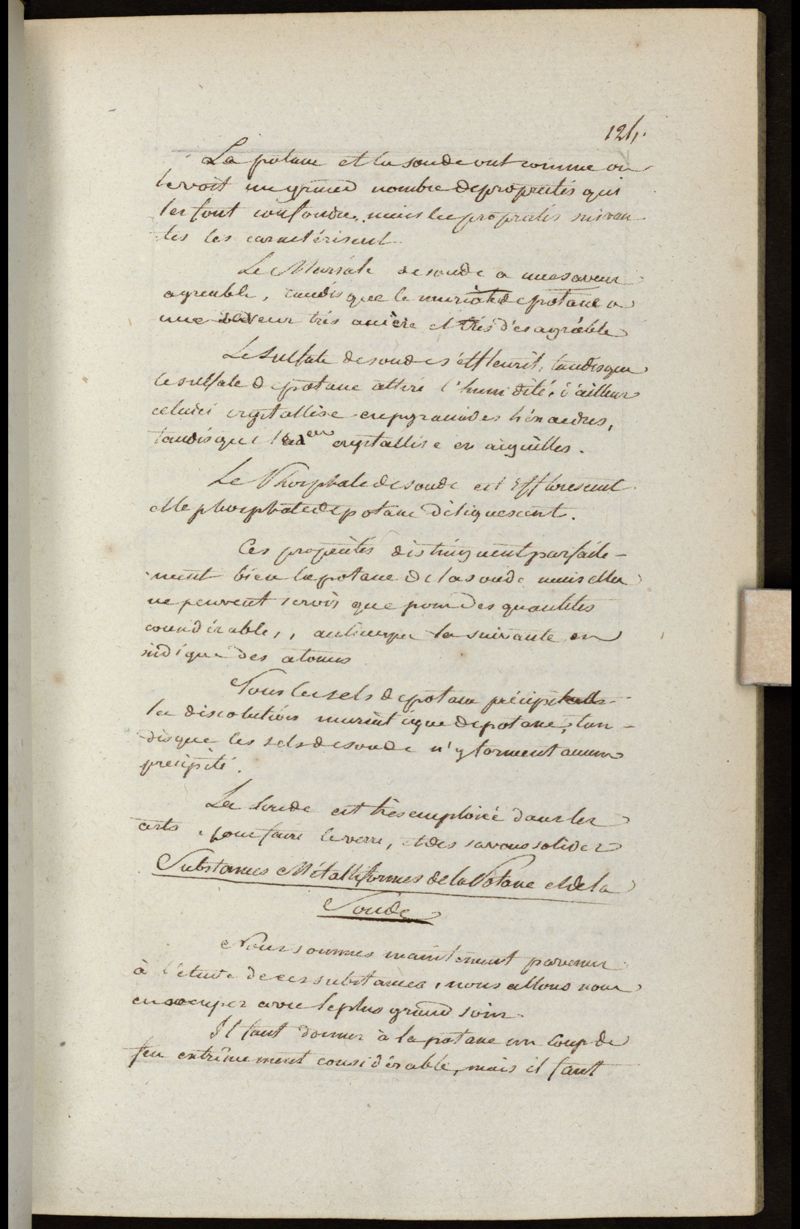 124.
La potasse et la soude ont comme on
le voit un grand nombre de proprietés qui
les font confondre, mais les proprietés suivan-
tes les caractérisent.
Le Muriate de soude a une saveur
agreable, tandis que le muriate de potasse a
une saveur très amère et très désagréable
Le Sulfate de soude s'effleurit, tandis que
le sulfate de potasse attire l'humidité, d'ailleurs
celui ci crystallise en pyramides héxaedres,
tandis que l' crystallise en aiguilles.
Le Phosphate de soude est efflorescent
et le phosphate de potasse déliquescent.
Ces propriétés distinguent parfaite-
ment bien la potasse de la soude mais elles
ne peuvent servir que pour des quantités
considérables, la suivante en
indique des atomes
Tous les sels de potasse précipitent
la dissolution muriatique de tan-
disque les sels de soude n'y forment aucun
précipité.
La Soude est très emploiée dans les
arts, pour faire le verre, et des savons solides
Substances Métalliformes de la Potasse et de la
Soude
Nous sommes maintenant parvenus
à l'étude de ces substances, nous allons nous
en occuper avec le plus grand soin.
Il faut donner à la potasse un coup de
feu extrêmement considérable, mais il faut